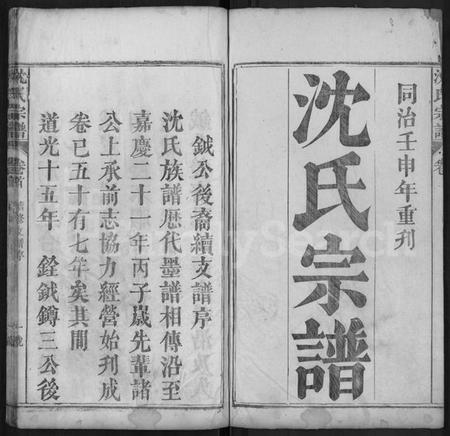 同治壬申年重刋
沈氏宗譜
鉞公後裔續支譜序
沈氏族譜歴代墨譜相傳沿至
嘉慶二十一年丙子嵗先輩諸
公上承前志協力經營始刋成
卷已五十有七年矣其間
道光十五年 銓鉞鐏三公後
沈氏宗譜
卷首
沈氏宗譜
卷